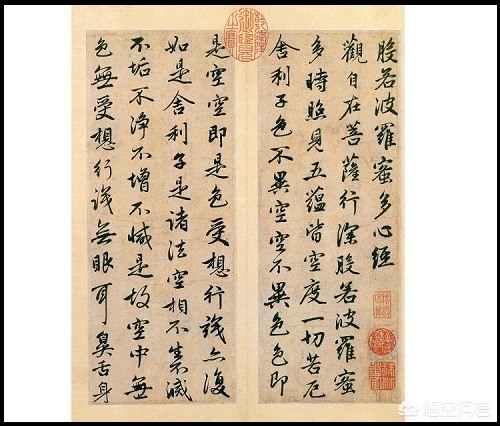 般若波羅蜜多心經
觀自在菩薩行深般若波羅蜜
多時照見五蘊皆空度一切苦厄
舍利子色不異空空不異色色即
是空空即是色受想行識亦復
如是舍利子是諸法空相不生不滅
不垢不净不增不減是故空中無
色無受想行識無眼耳鼻舌身
悟空问答